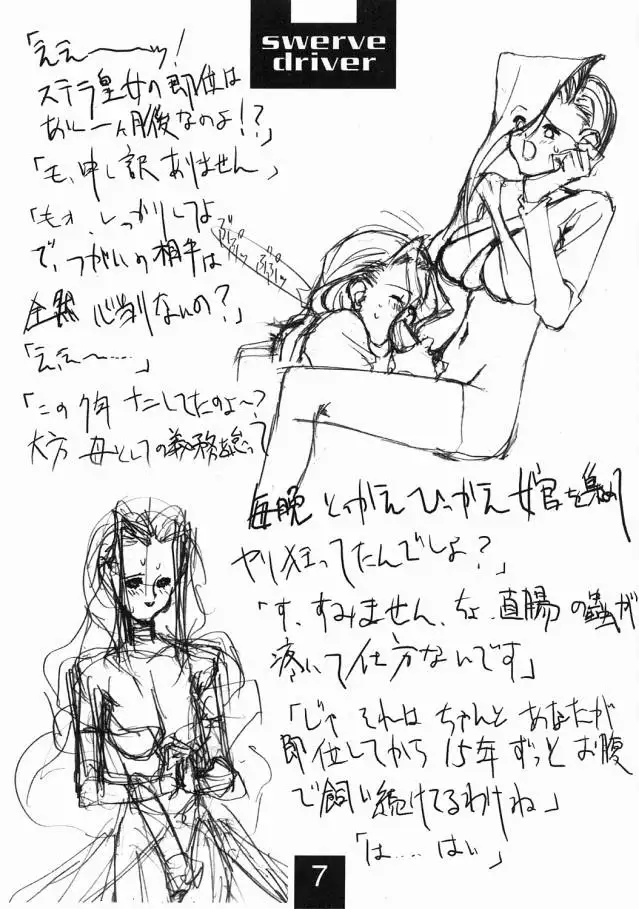 swerve
driver
「ええ———ッ!
ステラ皇女の即位は
あと一ヶ月後なのよ!?」
「も、申し訳ありません」
「もォ、しっかりしてよ
で、つがいの相手は
全然 心当りないの?」
「ええ〜……」
「この7年 ナニしてたのよ〜?
大方 母としての義務を怠って
毎晩 とっかえひっかえ 女官を集め
ヤリ狂ってたんでしょ?」
「す、すみません、ちょ、直腸の蟲が
疼いて仕方ないです」
「じゃ それは ちゃんと あなたが
即位してから 15年 ずっと お腹
で飼い続けてるわけね」
「は……はい」
7